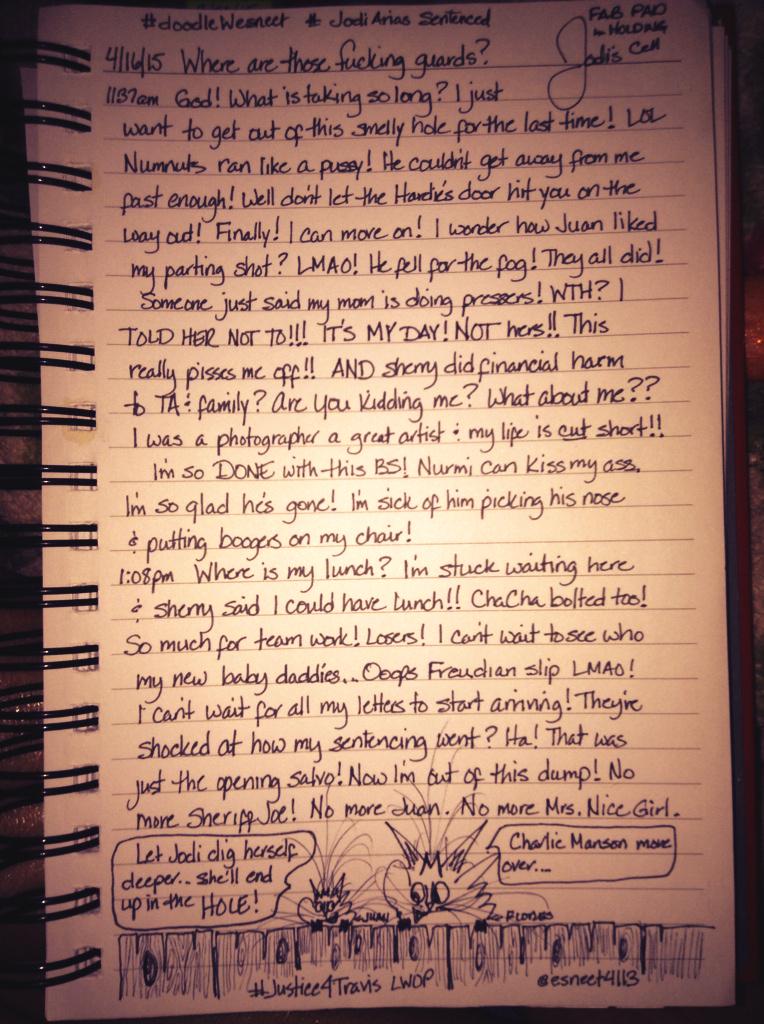 #doodleWesneet # Jodi Arias Sentenced
FAB PAD
in HOLDING
Jodi's Cell
4/16/15 Where are those fucking guards?
1137am God! What is taking so long? I just
want to get out of this smelly hole for the last time! LOL
Numnuts ran like a pussy! He couldn't get away from me
fast enough! Well don't let the Hardie's door hit you on the
way out! Finally! I can move on! I wonder how Juan liked
my parting shot? LMAO! He fell for the fog! They all did!
Someone just said my mom is doing pressers! WTH? I
TOLD HER NOT TO!!! IT'S MY DAY! NOT hers!! This
really pisses me off!! AND sherry did financial harm
to TA & family? Are you kidding me? What about me??
I was a photographer a great artist & my life is cut short!!
I'm so DONE with this BS! Nurmi can kiss my ass.
I'm so glad he's gone! I'm sick of him picking his nose
& putting boogers on my chair!
1:08pm Where is my lunch? I'm stuck waiting here
& sherry said I could have lunch!! ChaCha bolted too!
So much for team work! Losers! I can't wait to see who
my new baby daddies... Ooops Freudian slip LMAO!
I can't wait for all my letters to start arriving! They're
shocked at how my sentencing went? Ha! That was
just the opening salvo! Now I'm out of this dump! No
more Sheriff Joe! No more Juan. No more Mrs. Nice Girl.
Let Jodi dig herself
deeper... she'll end
up in the HOLE!
Charlie Manson move
over...
JUAN
FLORES
#Justice4Travis LWOP
@esneet4113